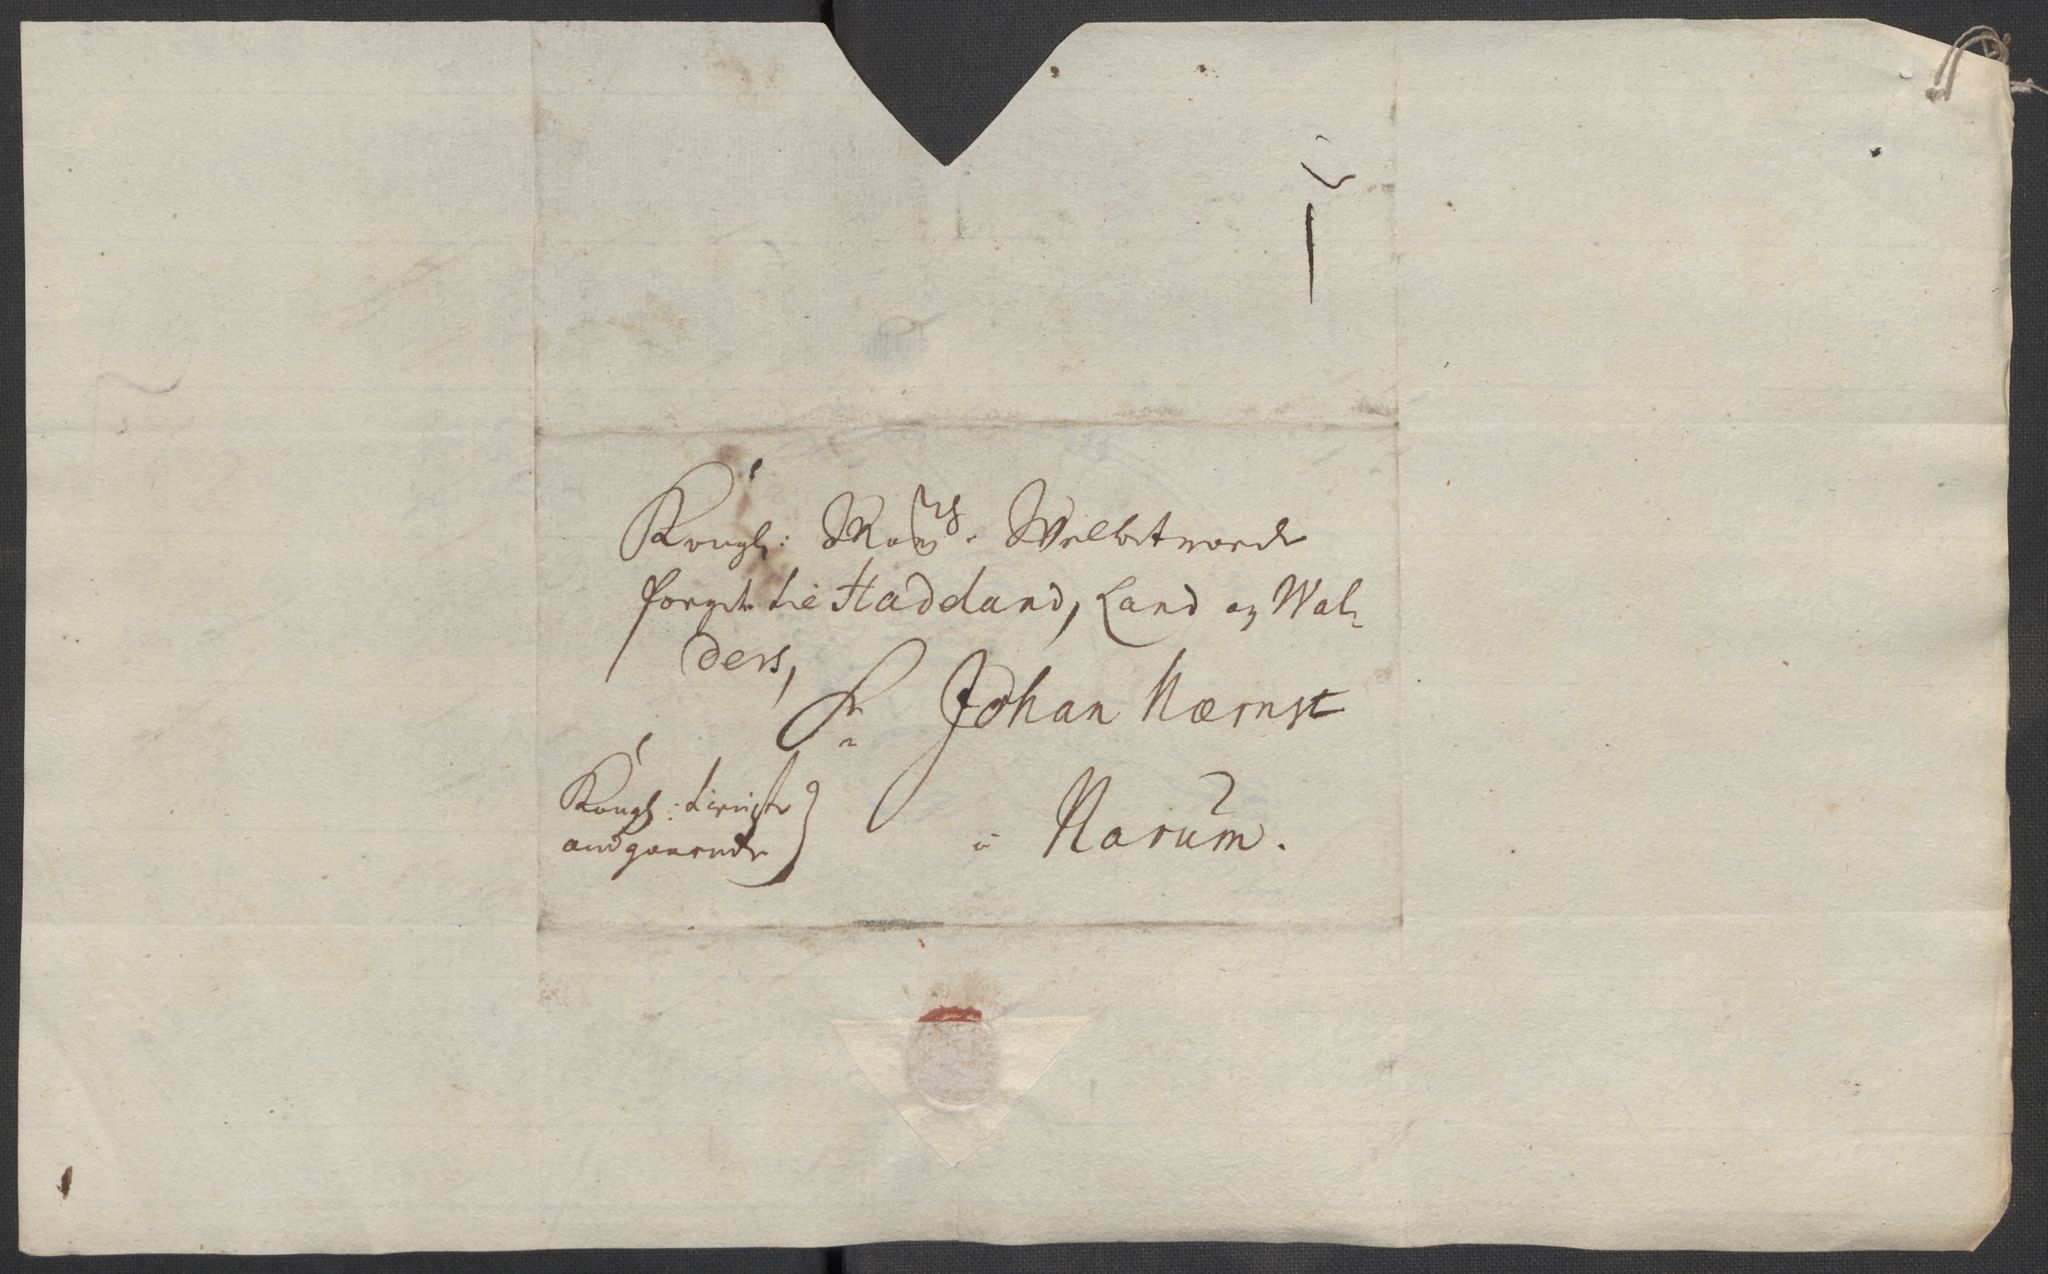 Kongl: Mayts: Welbetroede
foegit til Hadeland, Land og Wal-
ders,
Sr Johan Nærnst
Kongl: tieniste
andgaaende
a Narum.